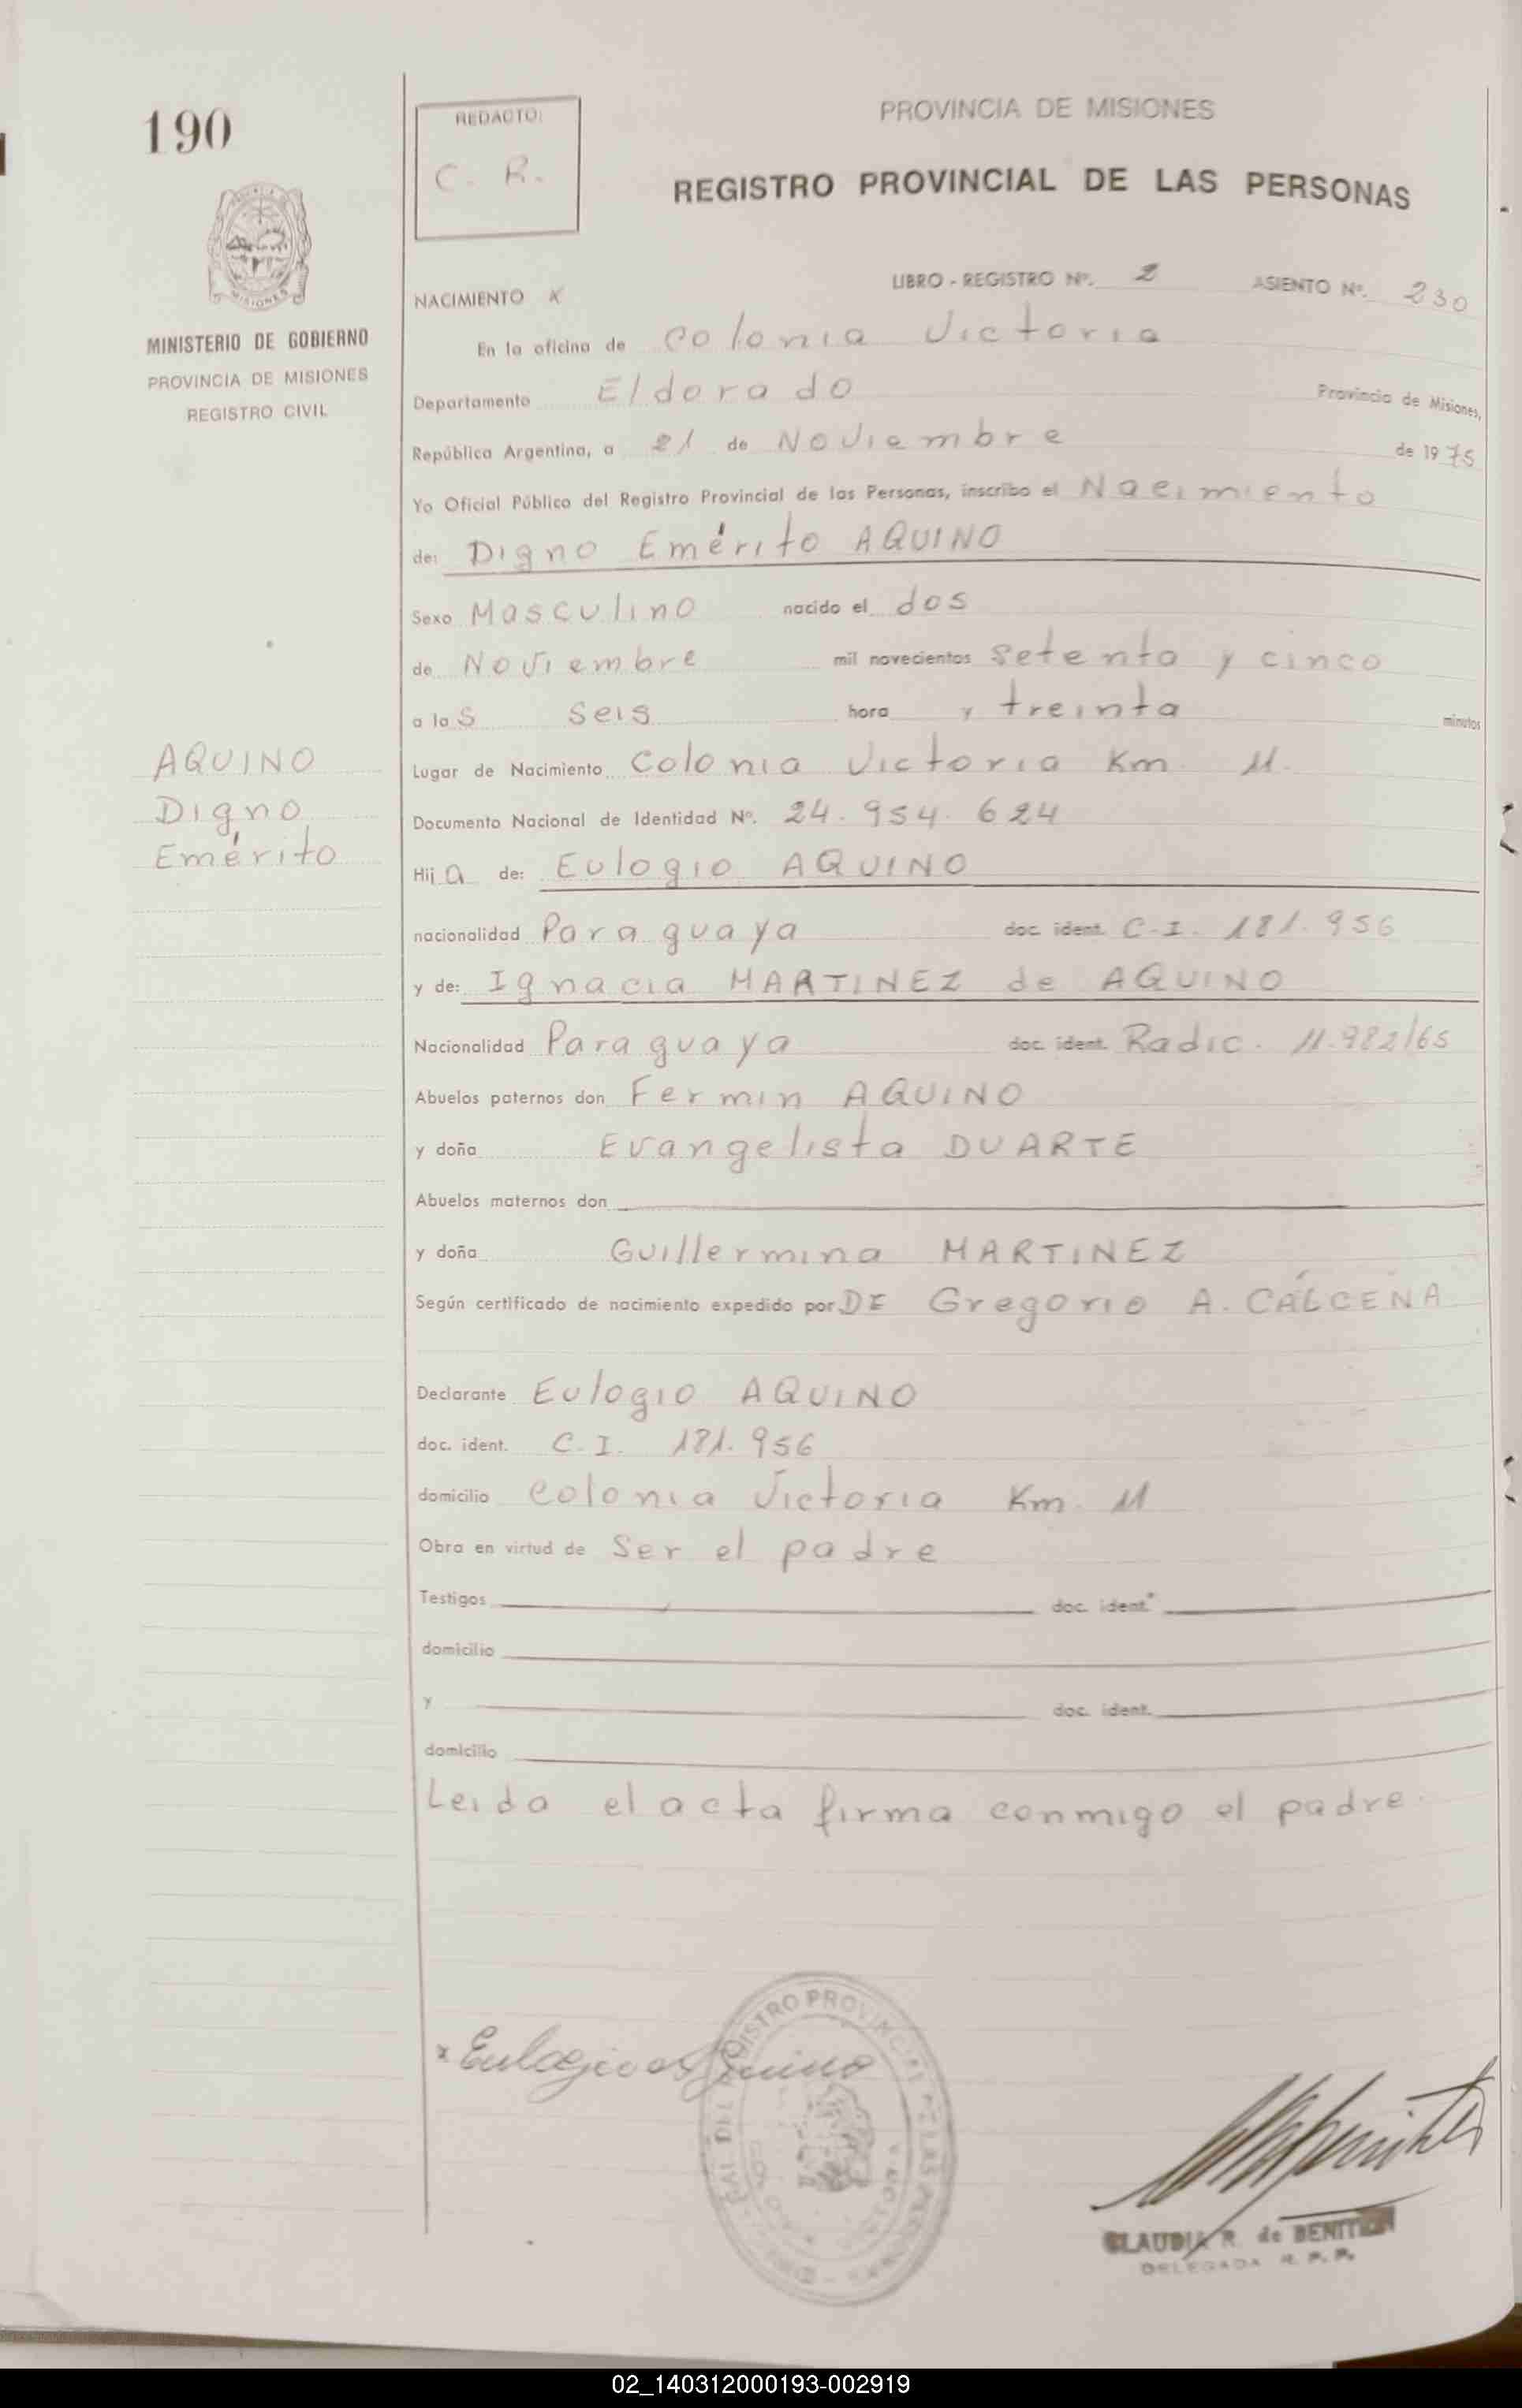 190
REDACTO:
C. R.
PROVINCIA DE MISIONES
REGISTRO PROVINCIAL DE LAS PERSONAS
MISIONES
MINISTERIO DE GOBIERNO
PROVINCIA DE MISIONES
REGISTRO CIVIL
LIBRO - REGISTRO Nº. 2 ASIENTO Nº. 230
NACIMIENTO X
En la oficina de Colonia Victoria
Departamento Eldorado Provincia de Misiones,
República Argentina, a 21 de Noviembre de 1975
Yo Oficial Público del Registro Provincial de las Personas, inscribo el Nacimiento
de: Digno Emérito AQUINO
Sexo Masculino nacido el dos
de Noviembre mil novecientos setenta y cinco
a las seis hora y treinta minutos
Lugar de Nacimiento Colonia Victoria Km. 11.
Documento Nacional de Identidad Nº. 24.954.624
AQUINO
Digno
Emérito
Hij a de: Eulogio AQUINO
nacionalidad Paraguaya doc. ident. C.I. 181.956
y de: Ignacia MARTINEZ de AQUINO
Nacionalidad Paraguaya doc. ident. Radic. 11.982/65
Abuelos paternos don Fermin AQUINO
y doña Evangelista DUARTE
Abuelos maternos don
y doña Guillermina MARTINEZ
Según certificado de nacimiento expedido por Gregorio A. CÁLCENA
Declarante Eulogio AQUINO
doc. ident. C.I. 181.956
domicilio Colonia Victoria Km. 11
Obra en virtud de Ser el padre
Testigos doc. ident.
domicilio
y doc. ident.
domicilio
Leida el acta firma conmigo el padre.
x Eulogio Aquino
CLAUDIA R. de BENITEZ
DELEGADA R. P. P.
02_140312000193-002919